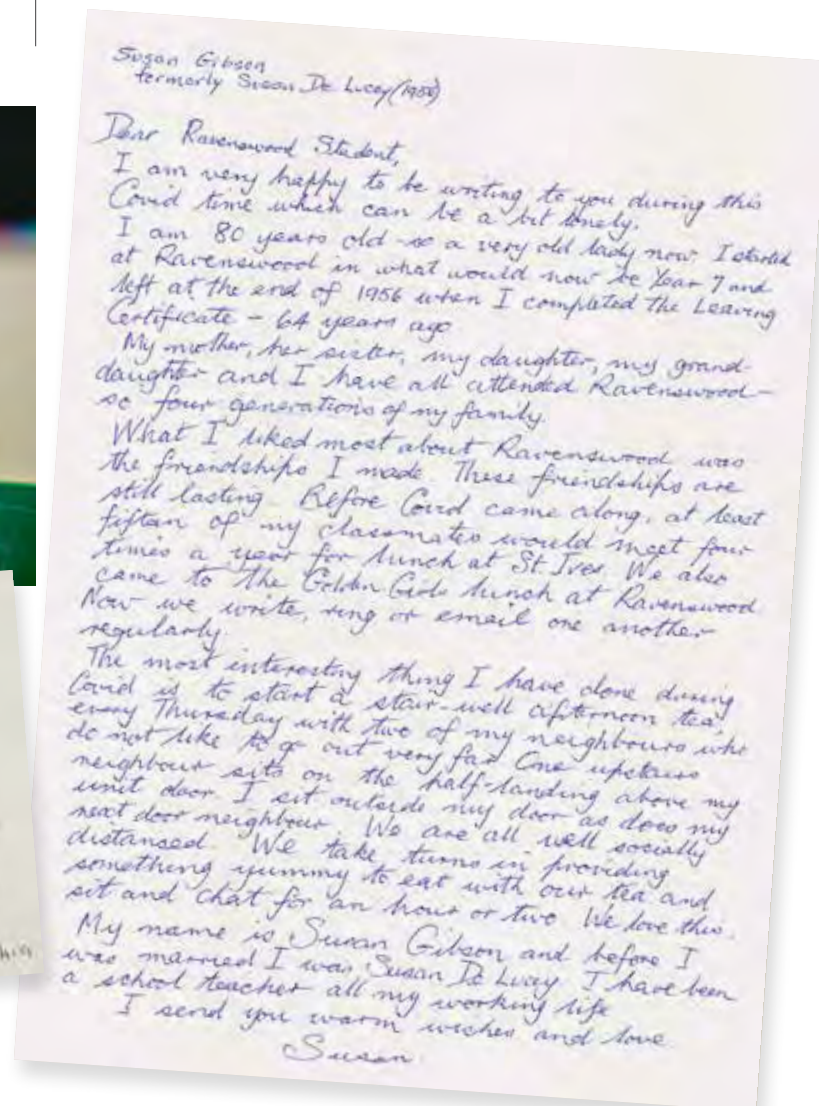 Susan Gibson
formerly Susan De Lucey (1956)
Dear Ravenswood Student,
I am very happy to be writing to you during this
Covid time which can be a bit lonely.
I am 80 years old - so a very old lady now. I started
at Ravenswood in what would now be Year 7 and
left at the end of 1956 when I completed the Leaving
Certificate - 64 years ago
My mother, her sister, my daughter, my grand-
daughter and I have all attended Ravenswood -
so four generations of my family.
What I liked most about Ravenswood was
the friendships I made. These friendships are
still lasting. Before Covid came along, at least
fifteen of my classmates would meet four
times a year for lunch at St. Ives. We also
came to the Golden Girls lunch at Ravenswood
Now we write, ring or email one another
regularly.
The most interesting thing I have done during
Covid is to start a stair-well afternoon tea,
every Thursday with two of my neighbours who
do not like to go out very far. One upstairs
neighbour sits on the half-landing above my
unit door. I sit outside my door as does my
next door neighbour. We are all well socially
distansed. We take turns in providing
something yummy to eat with our tea and
sit and chat for an hour or two. We love this.
My name is Susan Gibson and before I
was married I was Susan De Lucey. I have been
a school teacher all my working life
I send you warm wishes and love
Susan.